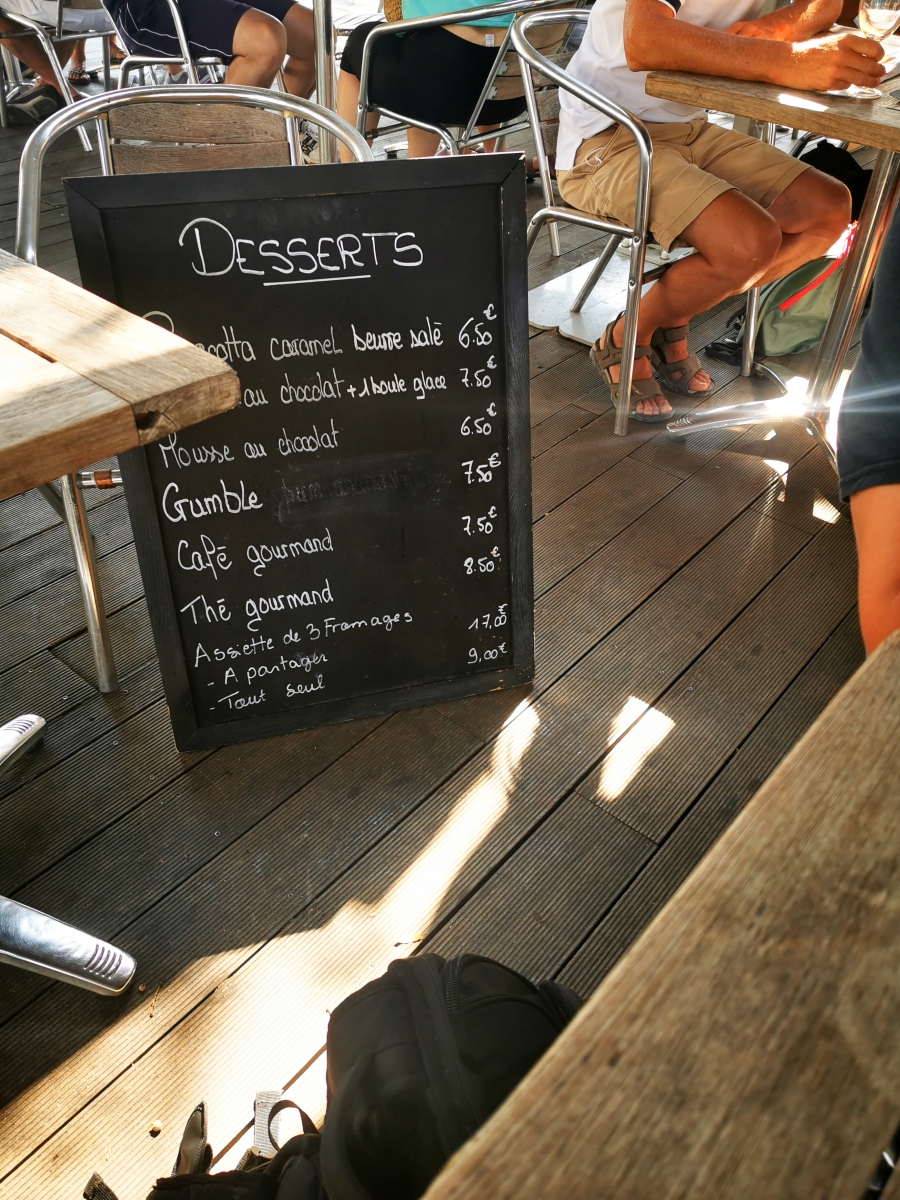 DESSERTS
cotta caramel beurre salé 6.50€
au chocolat + 1 boule glace 7.50€
Mousse au chocolat 6.50€
Crumble 7.50€
Café gourmand 7.50€
Thé gourmand 8.50€
Assiette de 3 Fromages
- A partager 17,00€
- Tout seul 9,00€